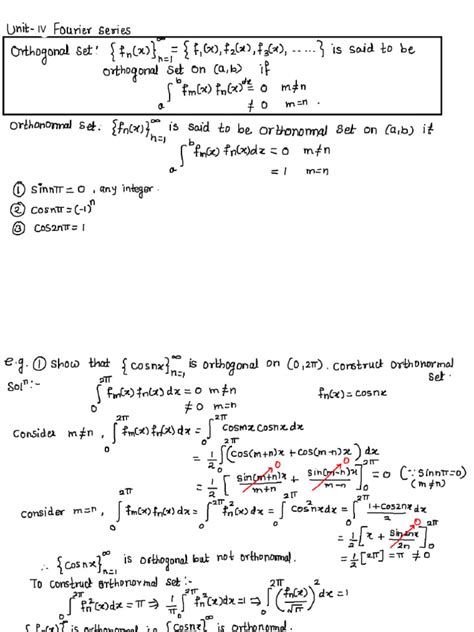 Unit-IV Fourier Series
Orthogonal Set: {fn(x)}∞n=1 = {f1(x), f2(x), f3(x), .....} is said to be
orthogonal set on (a,b) if
∫ab fm(x) fn(x) dx = 0 m≠n
≠ 0 m=n .
Orthonormal Set. {fn(x)}∞n=1 is said to be orthonormal set on (a,b) if
∫ab fm(x) fn(x) dx = 0 m≠n
= 1 m=n
① sin nπ = 0 , any integer.
② cos nπ = (-1)^n
③ cos 2nπ = 1
e.g. ① Show that {cos nx}∞n=1 is orthogonal on (0, 2π). Construct orthonormal
set.
Solⁿ:- ∫02π fm(x) fn(x) dx = 0 m≠n fn(x) = cos nx
≠ 0 m=n
Consider m≠n , ∫02π fm(x) fn(x) dx = ∫02π cos mx cos nx dx
= 1/2 ∫02π (cos(m+n)x + cos(m-n)x) dx
= 1/2 [ sin(m+n)x/m+n 0 + sin(m-n)x/m-n 0 ]02π = 0 (∵ sin nπ = 0) (m≠n)
Consider m=n, ∫02π fm(x) fn(x) dx = ∫02π fn²(x) dx = ∫02π cos² nx dx = ∫02π 1+cos 2nx/2 dx
= 1/2 [ x + sin 2nx/2n 0 ]02π
= 1/2 [2π] = π ≠ 0
∴ {cos nx}∞n=1 is orthogonal but not orthonormal.
To construct orthonormal set :-
∫02π fn²(x) dx = π ⇒ 1/π ∫02π fn²(x) dx = 1 ⇒ ∫02π (fn(x)/√π)² dx = 1
{fn(x)} is orthonormal i.e. {cos nx} is orthonormal.